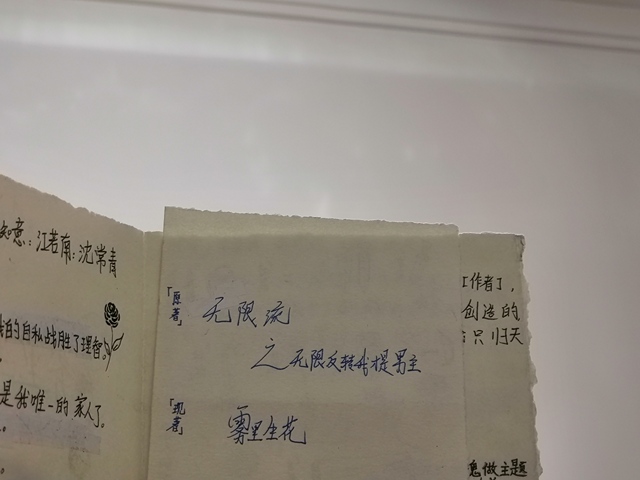 知意：江若南：沈常青
的自私战胜了理智。
是我唯一的家人了。
「原著」
无限流
之无限反转我是男主
「现著」
雾里生花
作者了，
创造的
只归天
做主题